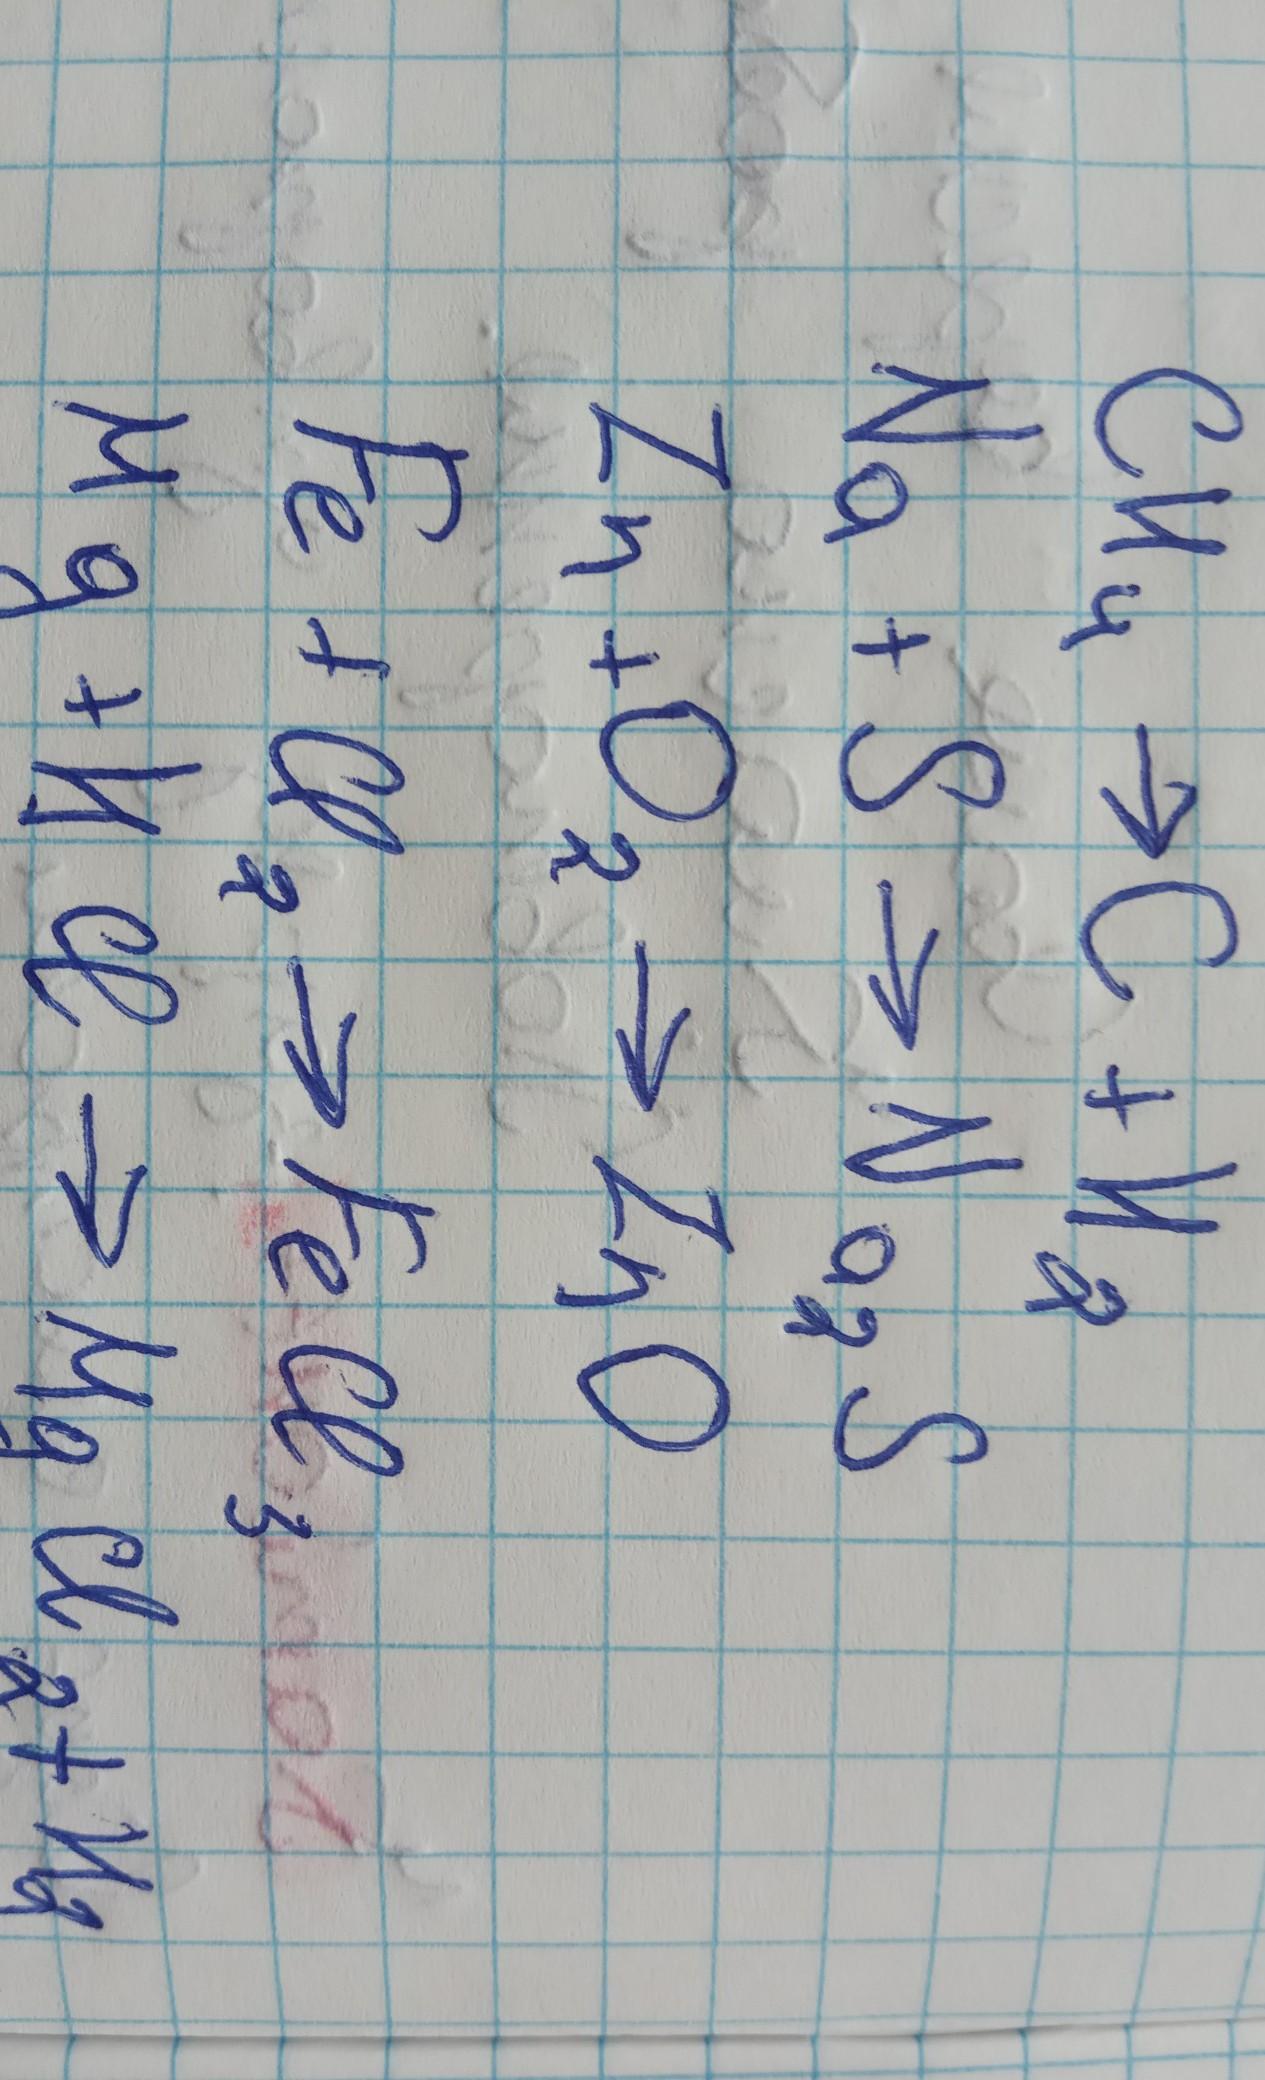 CH₄ → C + H₂
Na + S → Na₂S
Zn + O₂ → ZnO
Fe + Cl₂ → FeCl₃
Mg + HCl → MgCl₂ + H₂